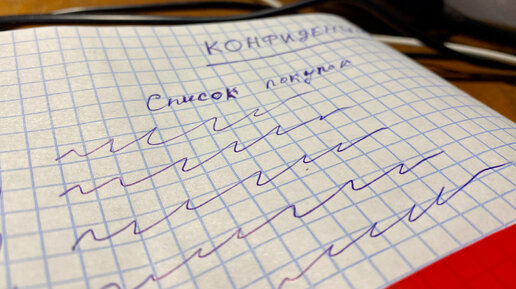 КОНФИДЕН
Список покупак